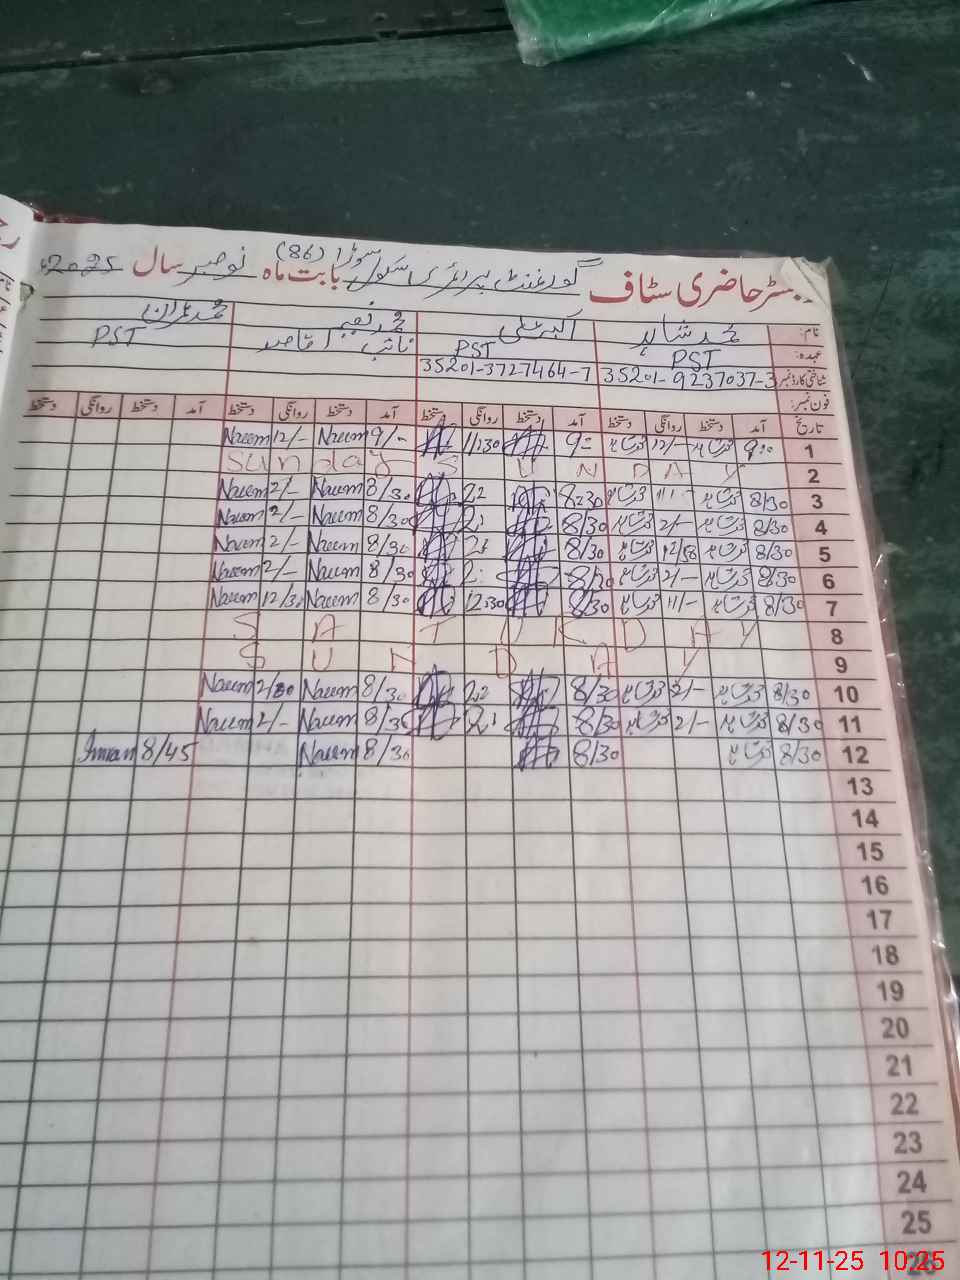 رجسٹر حاضری سٹاف گورنمنٹ پرائمری سکول سوڑا (86) بابت ماہ نومبر سال 2025ء
نام: محمد شاہد اکبر علی محمد نعیم محمد عمران
عہدہ: PST PST نائب قاصد PST
شناختی کارڈ نمبر 35201-9237037-3 35201-3727464-7
فون نمبر:
تاریخ آمد دستخط روانگی دستخط آمد دستخط روانگی دستخط آمد دستخط روانگی دستخط آمد دستخط روانگی دستخط
1 12/- 11:30 9/- Naeem 12/- Naeem
2 SUNDAY Sunday
3 8/30 8:30 8/30 Naeem 2/- Naeem
4 8/30 2/- 8/30 8/30 Naeem 2/- Naeem
5 8/30 8/30 8/30 Naeem 2/- Naeem
6 8/30 2/- 8/30 8/30 Naeem 2/- Naeem
7 8/30 11/- 8/30 12:30 8/30 Naeem 12/30 Naeem
8 SATURDAY
9 SUNDAY
10 8/30 2/- 8/30 8/30 Naeem Naeem
11 8/30 2/- 8/30 Naeem 2/- Naeem
12 8/30 8/30 8/30 Naeem 8/45 Imran
13
14
15
16
17
18
19
20
21
22
23
24
25
26
12-11-25 10:25